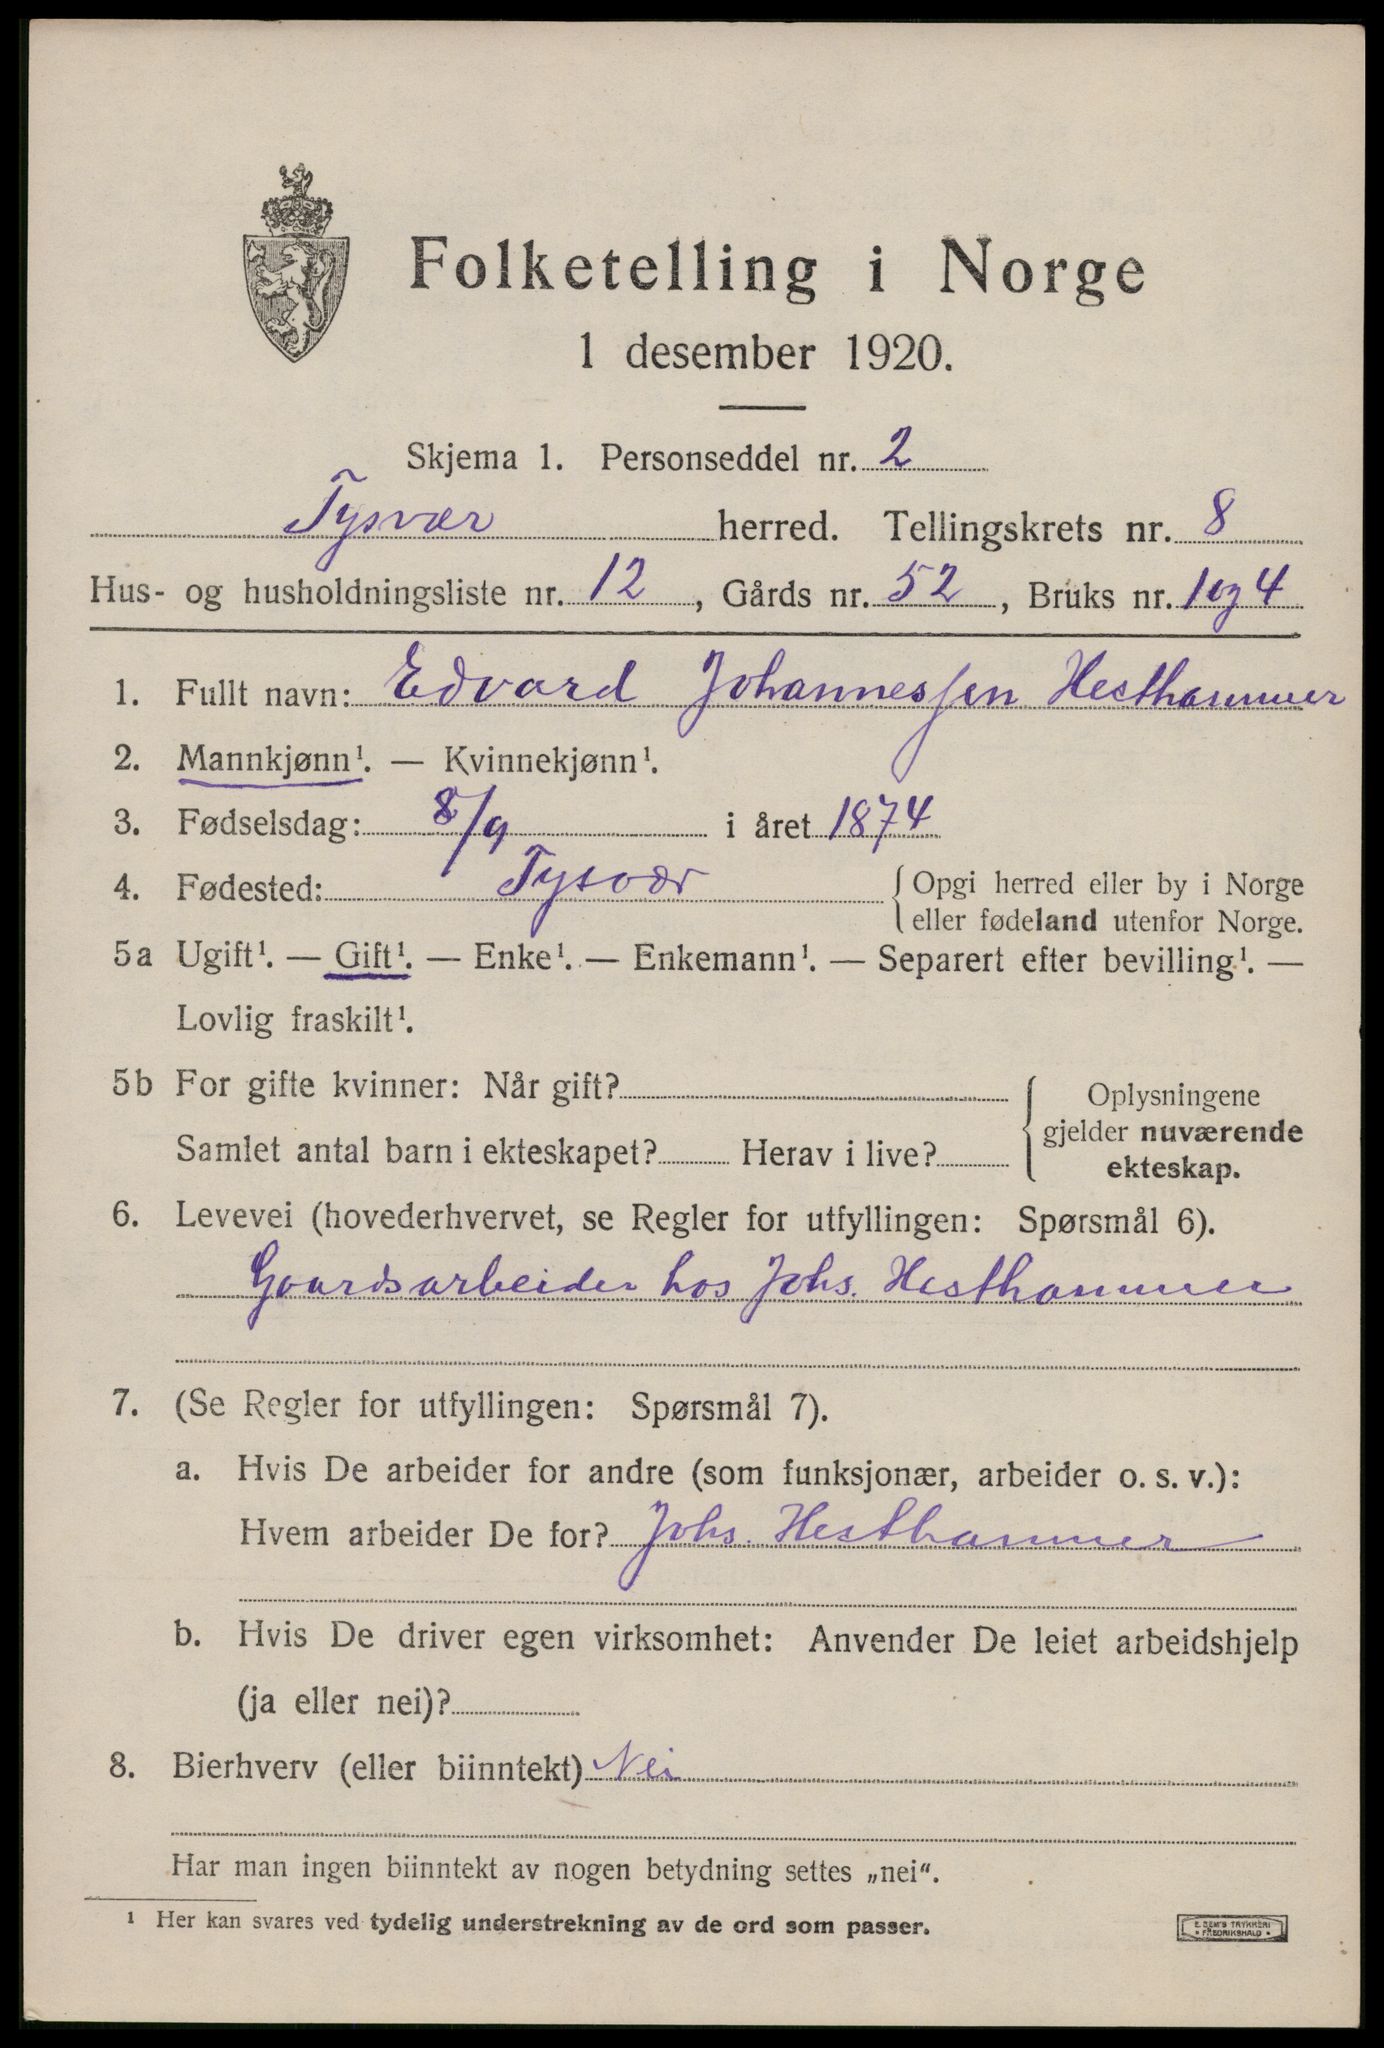 Folketelling i Norge
1 desember 1920.
Skjema 1. Personseddel nr. 2
Tysvær herred. Tellingskrets nr. 8
Hus- og husholdningsliste nr. 12, Gårds nr. 52, Bruks nr. 1 og 4
1. Fullt navn: Edvard Johannessen Hesthammer
2. Mannkjønn¹. — Kvinnekjønn¹.
3. Fødselsdag: 8/9 i året 1874
4. Fødested: Tysvær { Opgi herred eller by i Norge
eller fødeland utenfor Norge.
5a Ugift¹. — Gift¹. — Enke¹. — Enkemann¹. — Separert efter bevilling¹. —
Lovlig fraskilt¹.
5b For gifte kvinner: Når gift?
Samlet antal barn i ekteskapet? Herav i live?
Oplysningene
gjelder nuværende
ekteskap.
6. Levevei (hovederhvervet, se Regler for utfyllingen: Spørsmål 6).
Gaardsarbeider hos Johs. Hesthammer
7. (Se Regler for utfyllingen: Spørsmål 7).
a. Hvis De arbeider for andre (som funksjonær, arbeider o. s. v.):
Hvem arbeider De for? Johs. Hesthammer
b. Hvis De driver egen virksomhet: Anvender De leiet arbeidshjelp
(ja eller nei)?
8. Bierhverv (eller biinntekt) Nei
Har man ingen biinntekt av nogen betydning settes „nei“.
¹ Her kan svares ved tydelig understrekning av de ord som passer.
E. SEM'S TRYKKERI
• FREDRIKSHALD •